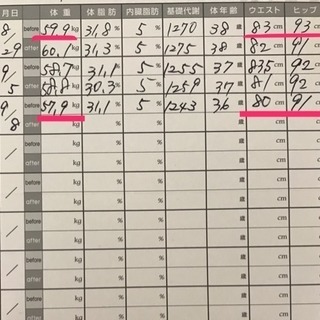 月日 体重 体脂肪 内臓脂肪 基礎代謝 体年齢 ウエスト ヒップ
8/29 before 59.9 kg 31.8 % 5 % 1270 38 歳 83 cm 93 cm
after 60.1 kg 31.3 % 5 % 1275 38 歳 82 cm 91
9/5 before 58.7 kg 31.1 % 5 % 1255 37 歳 83.5 cm 92
after 58.8 kg 30.3 % 5 % 1259 37 歳 81 cm 92
9/8 before 57.9 kg 31.1 % 5 % 1243 36 歳 80 cm 91
after kg % % 歳 cm cm
/ before kg % % 歳 cm cm
after kg % % 歳 cm cm
/ before kg % % 歳 cm cm
after kg % % 歳 cm cm
/ before kg % % 歳 cm cm
after kg % % 歳 cm cm
/ before kg % % 歳 cm cm
after kg % % 歳 cm cm
/ before kg % % 歳 cm cm
after kg % % 歳 cm cm